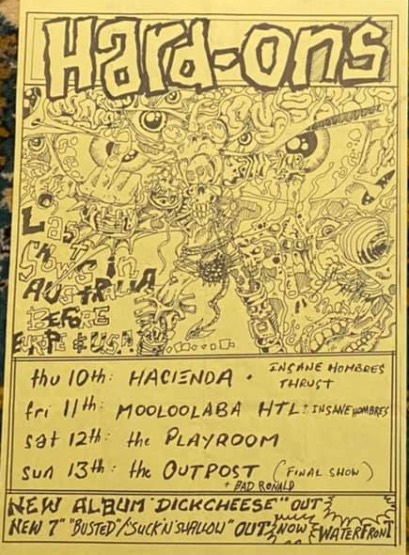 Hard-ons
LAST
SHOWS IN
AUSTRALIA
BEFORE
EUROPE & USA
thu 10th: HACIENDA · INSANE HOMBRES
THRUST
fri 11th: MOOLOOLABA HTL: INSANE HOMBRES
sat 12th: the PLAYROOM
sun 13th: the OUTPOST (FINAL SHOW)
+ BAD RONALD
NEW ALBUM "DICKCHEESE" OUT
NEW 7" "BUSTED"/"SUCK'N'SWALLOW" OUT NOW WATERFRONT